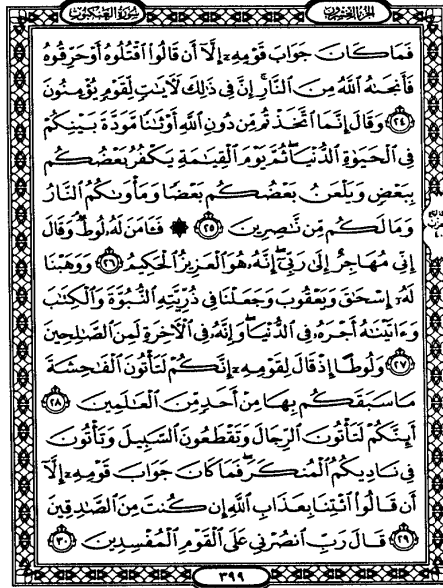 سورة العنكبوت الجزء العشرون
فَمَا كَانَ جَوَابَ قَوْمِهِۦٓ إِلَّآ أَن قَالُوا۟ ٱقْتُلُوهُ أَوْ حَرِّقُوهُ
فَأَنجَىٰهُ ٱللَّهُ مِنَ ٱلنَّارِ ۚ إِنَّ فِى ذَٰلِكَ لَءَايَٰتٍ لِّقَوْمٍ يُؤْمِنُونَ
﴿٢٤﴾ وَقَالَ إِنَّمَا ٱتَّخَذْتُم مِّن دُونِ ٱللَّهِ أَوْثَٰنًا مَّوَدَّةَ بَيْنِكُمْ
فِى ٱلْحَيَوٰةِ ٱلدُّنْيَا ۖ ثُمَّ يَوْمَ ٱلْقِيَٰمَةِ يَكْفُرُ بَعْضُكُم
بِبَعْضٍ وَيَلْعَنُ بَعْضُكُم بَعْضًا وَمَأْوَىٰكُمُ ٱلنَّارُ
وَمَا لَكُم مِّن نَّٰصِرِينَ ﴿٢٥﴾ ۞ فَـَٔامَنَ لَهُۥ لُوطٌ ۘ وَقَالَ
إِنِّى مُهَاجِرٌ إِلَىٰ رَبِّىٓ ۖ إِنَّهُۥ هُوَ ٱلْعَزِيزُ ٱلْحَكِيمُ ﴿٢٦﴾ وَوَهَبْنَا
لَهُۥٓ إِسْحَٰقَ وَيَعْقُوبَ وَجَعَلْنَا فِى ذُرِّيَّتِهِ ٱلنُّبُوَّةَ وَٱلْكِتَٰبَ
وَءَاتَيْنَٰهُ أَجْرَهُۥ فِى ٱلدُّنْيَا ۖ وَإِنَّهُۥ فِى ٱلْءَاخِرَةِ لَمِنَ ٱلصَّٰلِحِينَ
﴿٢٧﴾ وَلُوطًا إِذْ قَالَ لِقَوْمِهِۦٓ إِنَّكُمْ لَتَأْتُونَ ٱلْفَٰحِشَةَ
مَا سَبَقَكُم بِهَا مِنْ أَحَدٍ مِّنَ ٱلْعَٰلَمِينَ ﴿٢٨﴾
أَئِنَّكُمْ لَتَأْتُونَ ٱلرِّجَالَ وَتَقْطَعُونَ ٱلسَّبِيلَ وَتَأْتُونَ
فِى نَادِيكُمُ ٱلْمُنكَرَ ۖ فَمَا كَانَ جَوَابَ قَوْمِهِۦٓ إِلَّآ
أَن قَالُوا۟ ٱئْتِنَا بِعَذَابِ ٱللَّهِ إِن كُنتَ مِنَ ٱلصَّٰدِقِينَ
﴿٢٩﴾ قَالَ رَبِّ ٱنصُرْنِى عَلَى ٱلْقَوْمِ ٱلْمُفْسِدِينَ ﴿٣٠﴾
٣٩٩